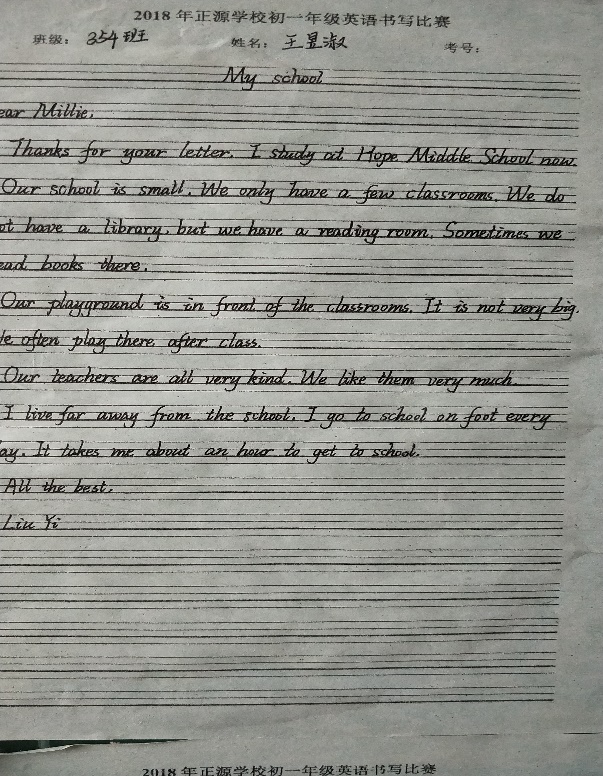 2018 年正源学校初一年级英语书写比赛
班级: 354班 姓名: 王昱淑 考号:
My school
ear Millie.
Thanks for your letter. I study at Hope Middle School now.
Our school is small. We only have a few classrooms. We do
ot have a library, but we have a reading room. Sometimes we
ead books there.
Our playground is in front of the classrooms. It is not very big.
e often play there after class.
Our teachers are all very kind. We like them very much.
I live far away from the school. I go to school on foot every
ay. It takes me about an hour to get to school.
All the best.
Liu Yi
2018 年正源学校初一年级英语书写比赛